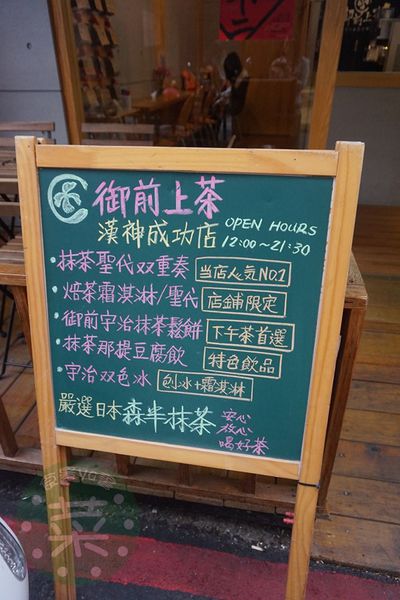 御前上茶
漢神成功店
OPEN HOURS
12:00~21:30
•抹茶聖代双重奏 当店人気NO.1
•焙茶霜淇淋/聖代 店舖限定
•御前宇治抹茶鬆餅 下午茶首選
•抹茶那提豆腐飲 特色飲品
•宇治双色冰 刨冰+霜淇淋
嚴選日本森半抹茶
安心
放心
喝好茶
菜